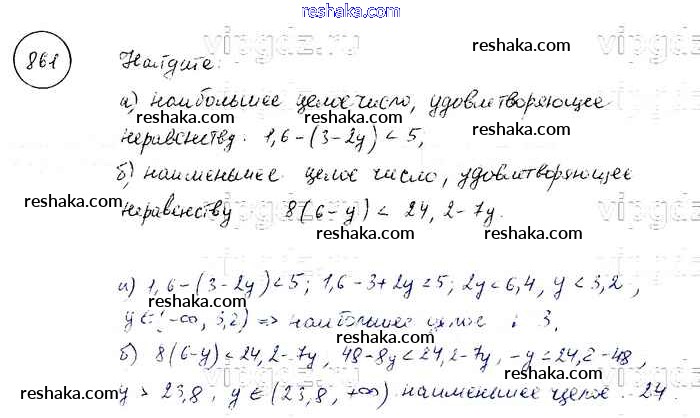 reshaka.com
861
Найдите:
а) наибольшее целое число, удовлетворяющее
неравенству. 1,6-(3-2y)<5,
б) наименьшее целое число, удовлетворяющее
неравенству 8(6-y) < 24,2-7y.
а) 1,6-(3-2y)<5; 1,6-3+2y<5; 2y<6,4, y<3,2,
y∈(-∞, 3,2) => наибольшее целое : 3,
б) 8(6-y)<24,2-7y, 48-8y<24,2-7y, -y<24,2-48,
y > 23,8, y∈(23,8, +∞) наименьшее целое : 24
vipgdz.com
reshaka.com
reshaka.com
reshaka.com
reshaka.com
reshaka.com
reshaka.com
reshaka.com
reshaka.com
reshaka.com
reshaka.com